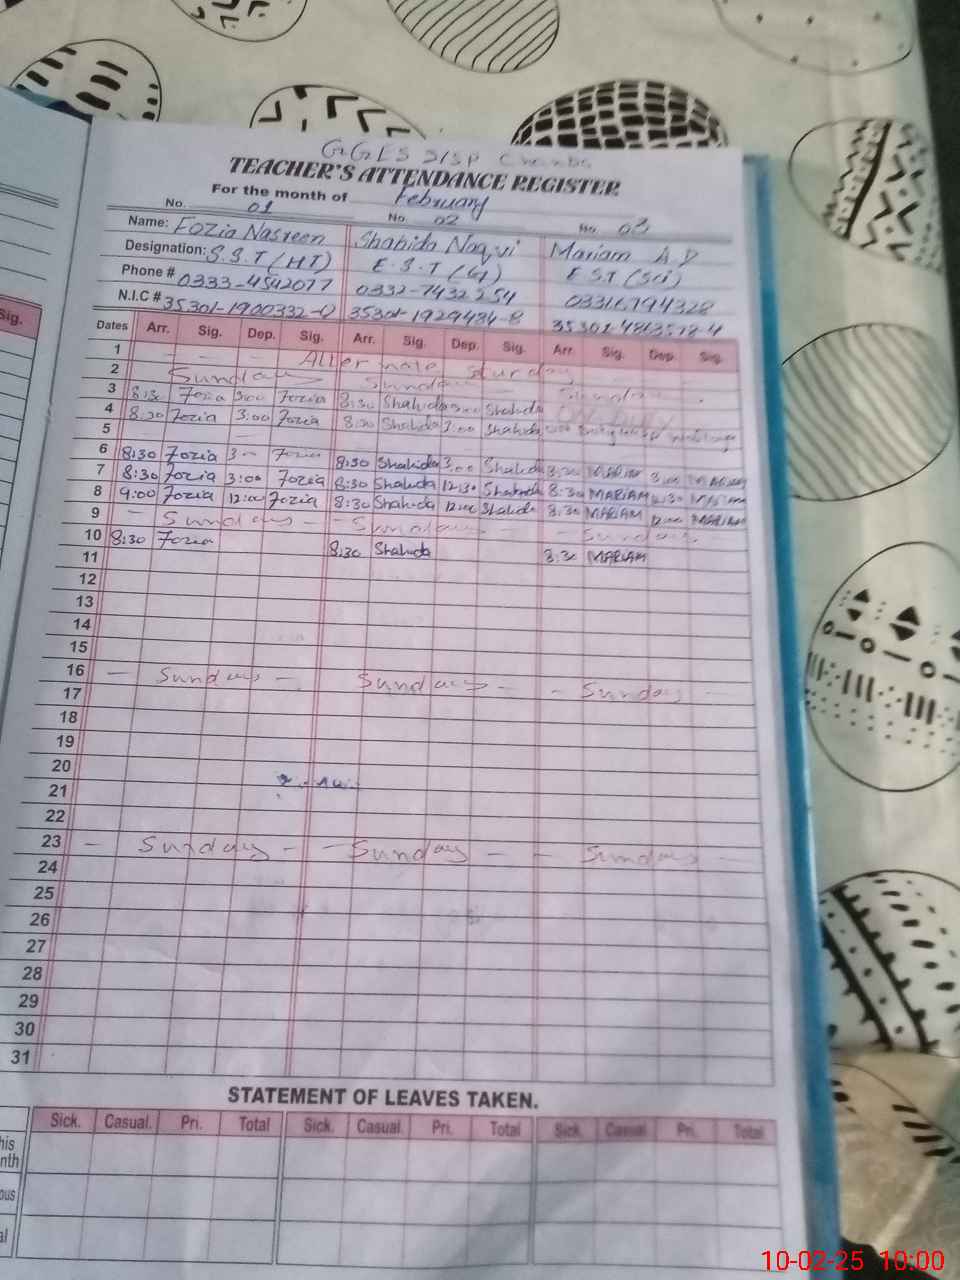 GGES
TEACHER'S ATTENDANCE REGISTER
For the month of February
No. 01 No. 02 No. 03
Name: Fozia Nasreen Shahida Naqvi Mariam A.D
Designation: S.S.T (HT) E.S.T (G) E.S.T (Sci)
Phone # 0333-4542077 0332-7432254 03316794328
N.I.C # 35301-1900332-0 35301-1929484-8
Dates Arr. Sig. Dep. Sig. Arr. Sig. Dep. Sig. Arr. Sig. Dep. Sig.
1
2 Sunday Sunday Sunday
3 8:30 Fozia 3:00 Fozia 8:30 Shahida 3:00 Shahida
4 8:30 Fozia 3:00 Fozia 8:30 Shahida 3:00 Shahida
5
6 8:30 Fozia 3:00 Fozia 8:30 Shahida 3:00 Shahida 8:30 MARIAM 3:00 MARIAM
7 8:30 Fozia 3:00 Fozia 8:30 Shahida 12:30 Shahida 8:30 MARIAM 12:30 MARIAM
8 9:00 Fozia 12:00 Fozia 8:30 Shahida 12:00 Shahida 8:30 MARIAM 12:00 MARIAM
9 - Sunday - - Sunday - - Sunday -
10 8:30 Fozia 8:30 Shahida 8:30 MARIAM
11
12
13
14
15
16 - Sunday - Sunday - - Sunday -
17
18
19
20
21
22
23 - Sunday - - Sunday - - Sunday -
24
25
26
27
28
29
30
31
STATEMENT OF LEAVES TAKEN.
Sick. Casual. Pri. Total Sick. Casual Pri. Total Sick. Casual Pri. Total
10-02-25 10:00